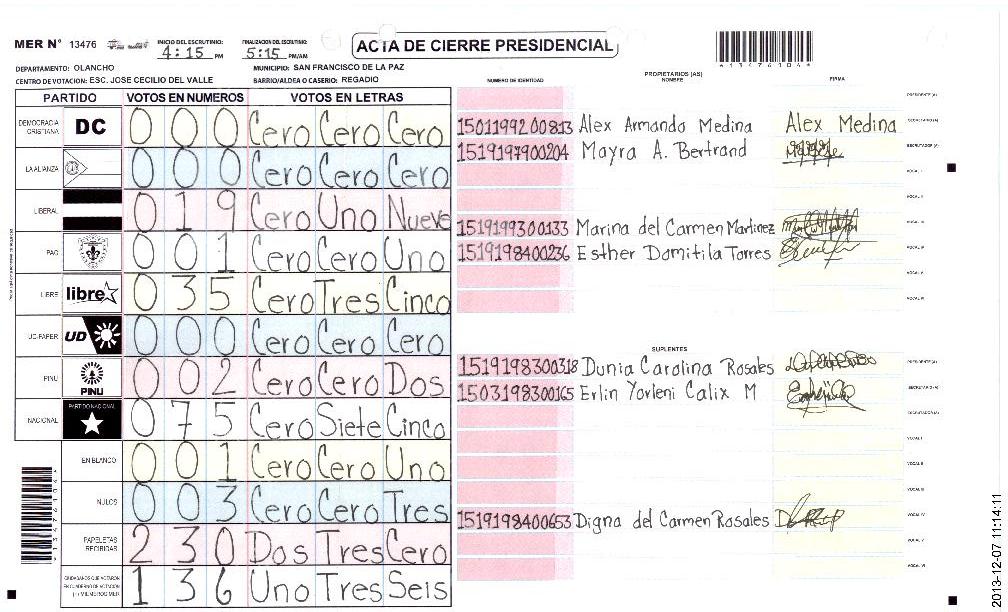 MER N° 13476
INICIO DEL ESCRUTINIO: 4:15 PM
FINALIZACION DEL ESCRUTINIO: 5:15 PM/AM
ACTA DE CIERRE PRESIDENCIAL
DEPARTAMENTO: OLANCHO MUNICIPIO: SAN FRANCISCO DE LA PAZ
CENTRO DE VOTACION: ESC. JOSE CECILIO DEL VALLE BARRIO/ALDEA O CASERIO: REGADIO
PARTIDO VOTOS EN NUMEROS VOTOS EN LETRAS
DEMOCRACIA CRISTIANA DC 0 0 0 Cero Cero Cero
LA ALIANZA 0 0 0 Cero Cero Cero
LIBERAL 0 1 9 Cero Uno Nueve
PAC 0 0 1 Cero Cero Uno
LIBRE libre 0 3 5 Cero Tres Cinco
UD-FAPER UD 0 0 0 Cero Cero Cero
PINU PINU 0 0 2 Cero Cero Dos
NACIONAL PARTIDO NACIONAL 0 7 5 Cero Siete Cinco
EN BLANCO 0 0 1 Cero Cero Uno
NULOS 0 0 3 Cero Cero Tres
PAPELETAS RECIBIDAS 2 3 0 Dos Tres Cero
CIUDADANOS QUE VOTARON EN CUADERNO DE VOTACION (+) MIEMBROS MER 1 3 6 Uno Tres Seis
NUMERO DE IDENTIDAD PROPIETARIOS (AS) NOMBRE FIRMA
PRESIDENTE (A)
1501199200813 Alex Armando Medina Alex Medina SECRETARIO (A)
1519197900204 Mayra A. Bertrand ESCRUTADOR (A)
VOCAL I
VOCAL II
1519199300133 Marina del Carmen Martinez VOCAL III
1519198400236 Esther Domitila Torres VOCAL IV
VOCAL V
VOCAL VI
SUPLENTES
1519198300318 Dunia Carolina Rosales PRESIDENTE (A)
1503198300165 Erlin Yorleni Calix M SECRETARIO (A)
ESCRUTADOR (A)
VOCAL I
VOCAL II
VOCAL III
1519198400653 Digna del Carmen Rosales VOCAL IV
VOCAL V
VOCAL VI
2013-12-07 11:14:11